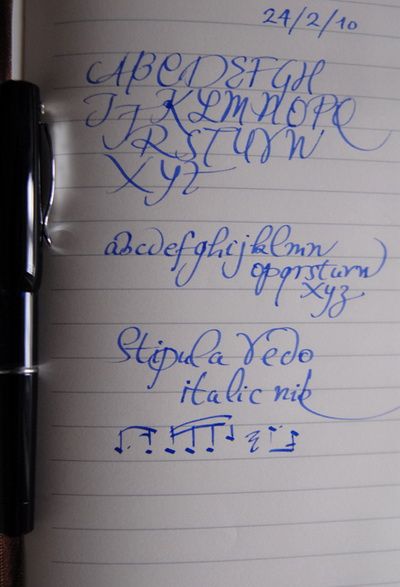 24/2/10
ABCDEFGH
IJKLMNOPQ
RSTUVW
XYZ
abcdefghijklmn
opqrsturn
xyz
Stipula Vedo
italic nib